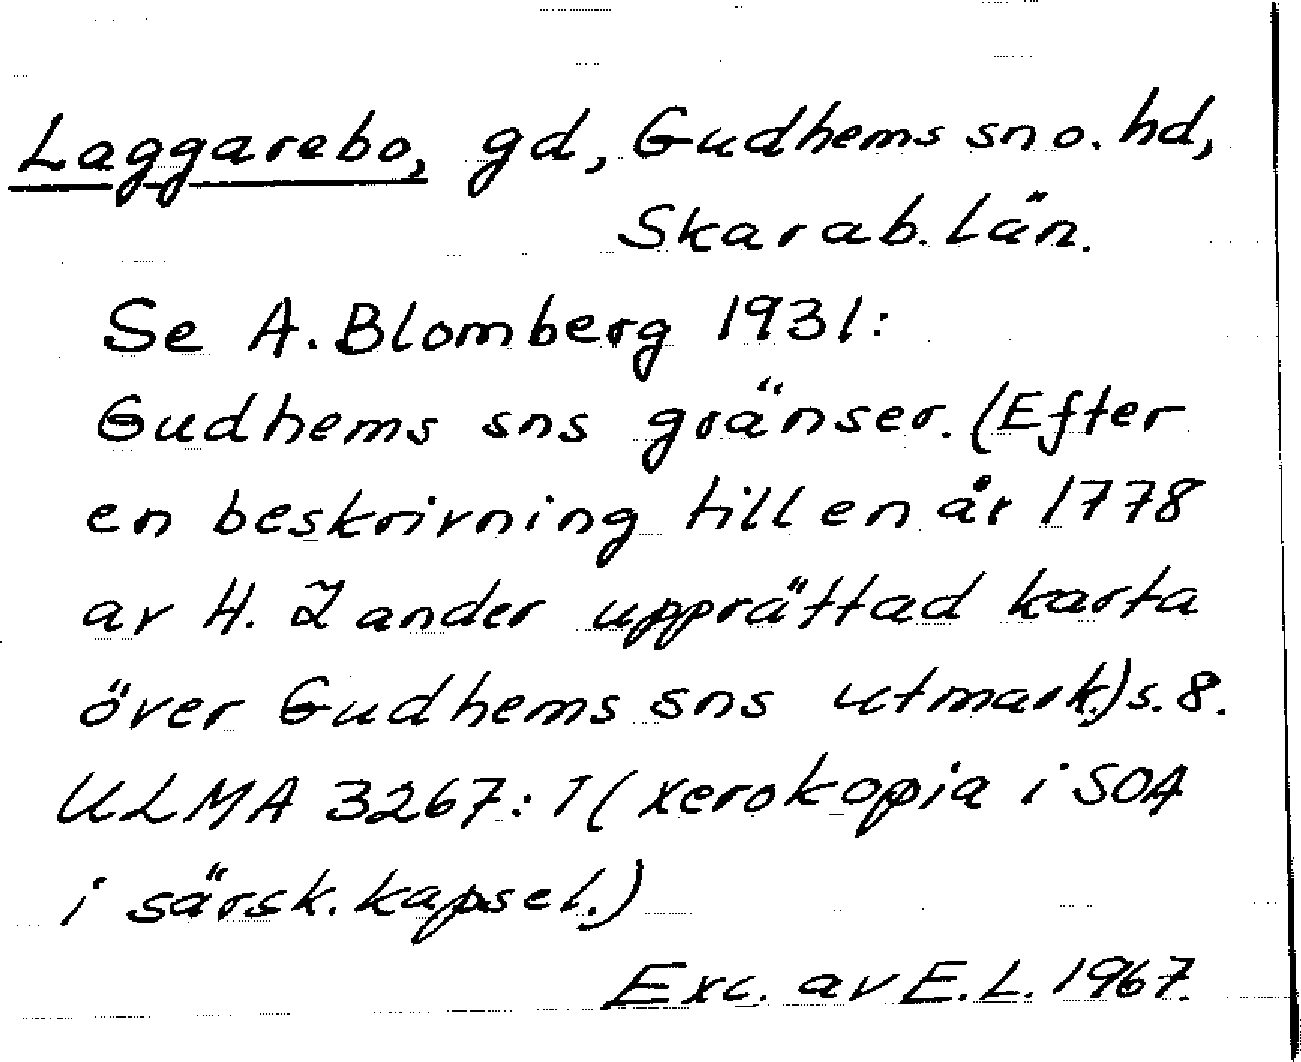 Laggarebo, gd, Gudhems sn o. hd,
Skarab. län.
Se A. Blomberg 1931:
Gudhems sns gränser. (Efter
en beskrivning till en år 1778
av H. Zander upprättad karta
över Gudhems sns utmark.) s. 8.
ULMA 3267:1 (xerokopia i SOA
i särsk. kapsel.)
Exc. av E.L. 1967.